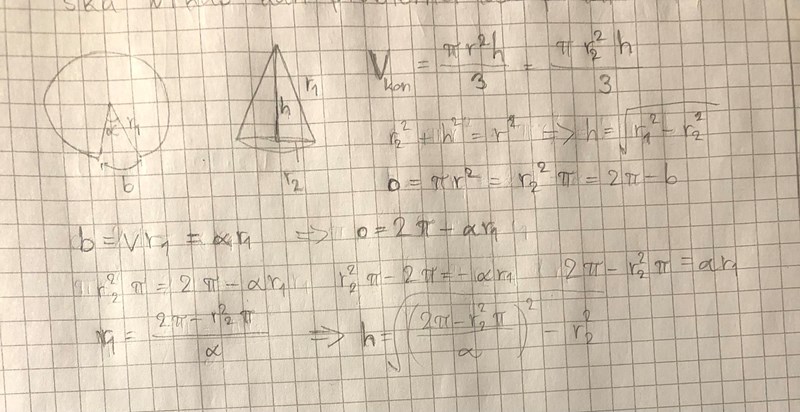 ska
α r₁
b
r₁
h
r₂
V_kon = πr²h/3 = πr₂²h/3
r₂² + h² = r² => h = √(r₁² - r₂²)
o = πr² = r₂²π = 2π - b
b = vr₁ = αr₁ => o = 2π - αr₁
r₂²π = 2π - αr₁ r₂²π - 2π = -αr₁ 2π - r₂²π = αr₁
r₁ = (2π - r₂²π)/α => h = √(((2π - r₂²π)/α)² - r₂²)